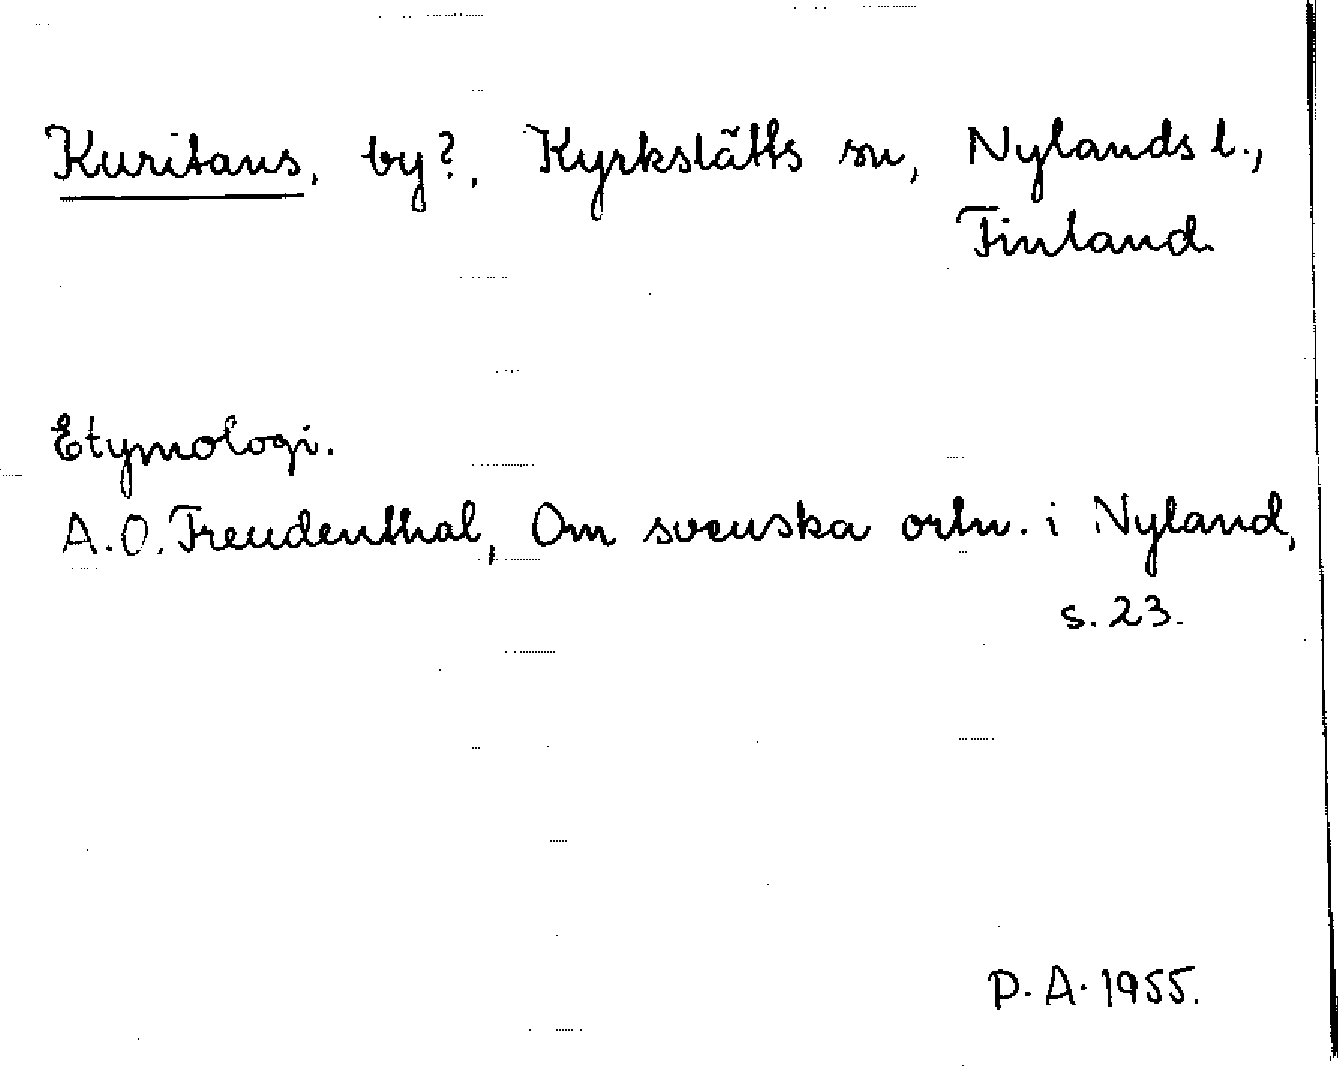 Kuritans, by?, Kyrkslätts sn, Nylands l.,
Finland.
Etymologi.
A.O. Freudenthal, Om svenska ortn. i Nyland,
s. 23.
P. A. 1955.